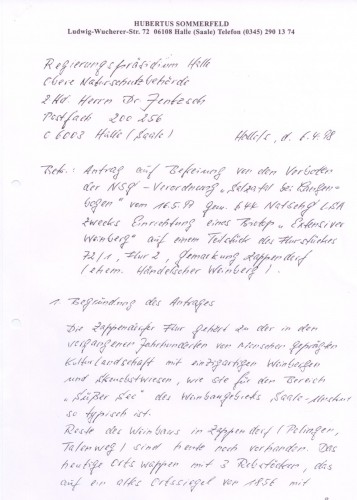 HUBERTUS SOMMERFELD
Ludwig-Wucherer-Str. 72 06108 Halle (Saale) Telefon (0345) 290 13 74
Regierungspräsidium Halle
Obere Naturschutzbehörde
z Hd. Herrn Dr. Jentzsch
Postfach 200 256
06003 Halle (Saale)
Halle/S, d. 6.4.98
Betr.: Antrag auf Befreiung von den Verboten
der NSG-Verordnung „Salzatal bei Langen-
bogen" vom 16.5.97 gem. § 44 NatSchG LSA
zwecks Einrichtung eines Biotop „Extensiver
Weinberg" auf einem Teilstück des Flurstückes
72/1, Flur 2, Gemarkung Zappendorf
(ehem. Händelscher Weinberg).
1. Begründung des Antrages
Die Zappendorfer Flur gehört zu der in den
vergangenen Jahrhunderten von Menschen geprägten
Kulturlandschaft mit einzigartigen Weinbergen
und Streuobstwiesen, wie sie für den Bereich
„Süßer See" des Weinbaugebiets Saale-Unstrut
so typisch ist.
Reste des Weinbaus in Zappendorf (
Talenweg) sind heute noch vorhanden. Das
heutige Ortswappen mit 3 Rebstöcken, das
auf ein altes Ortssiegel vor 1856 mit